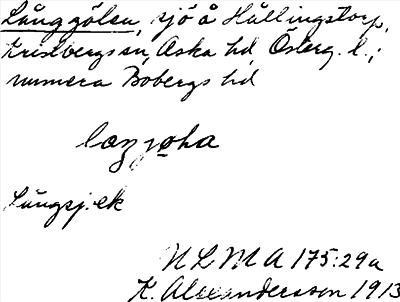 Långgölsa, sjö å Hållingstorp,
Kristbergs sn, Aska hd, Österg. l.;
numera Bobergs hd
Långsj.ek
NLMA 175:29a
K. Alexandersson 1913